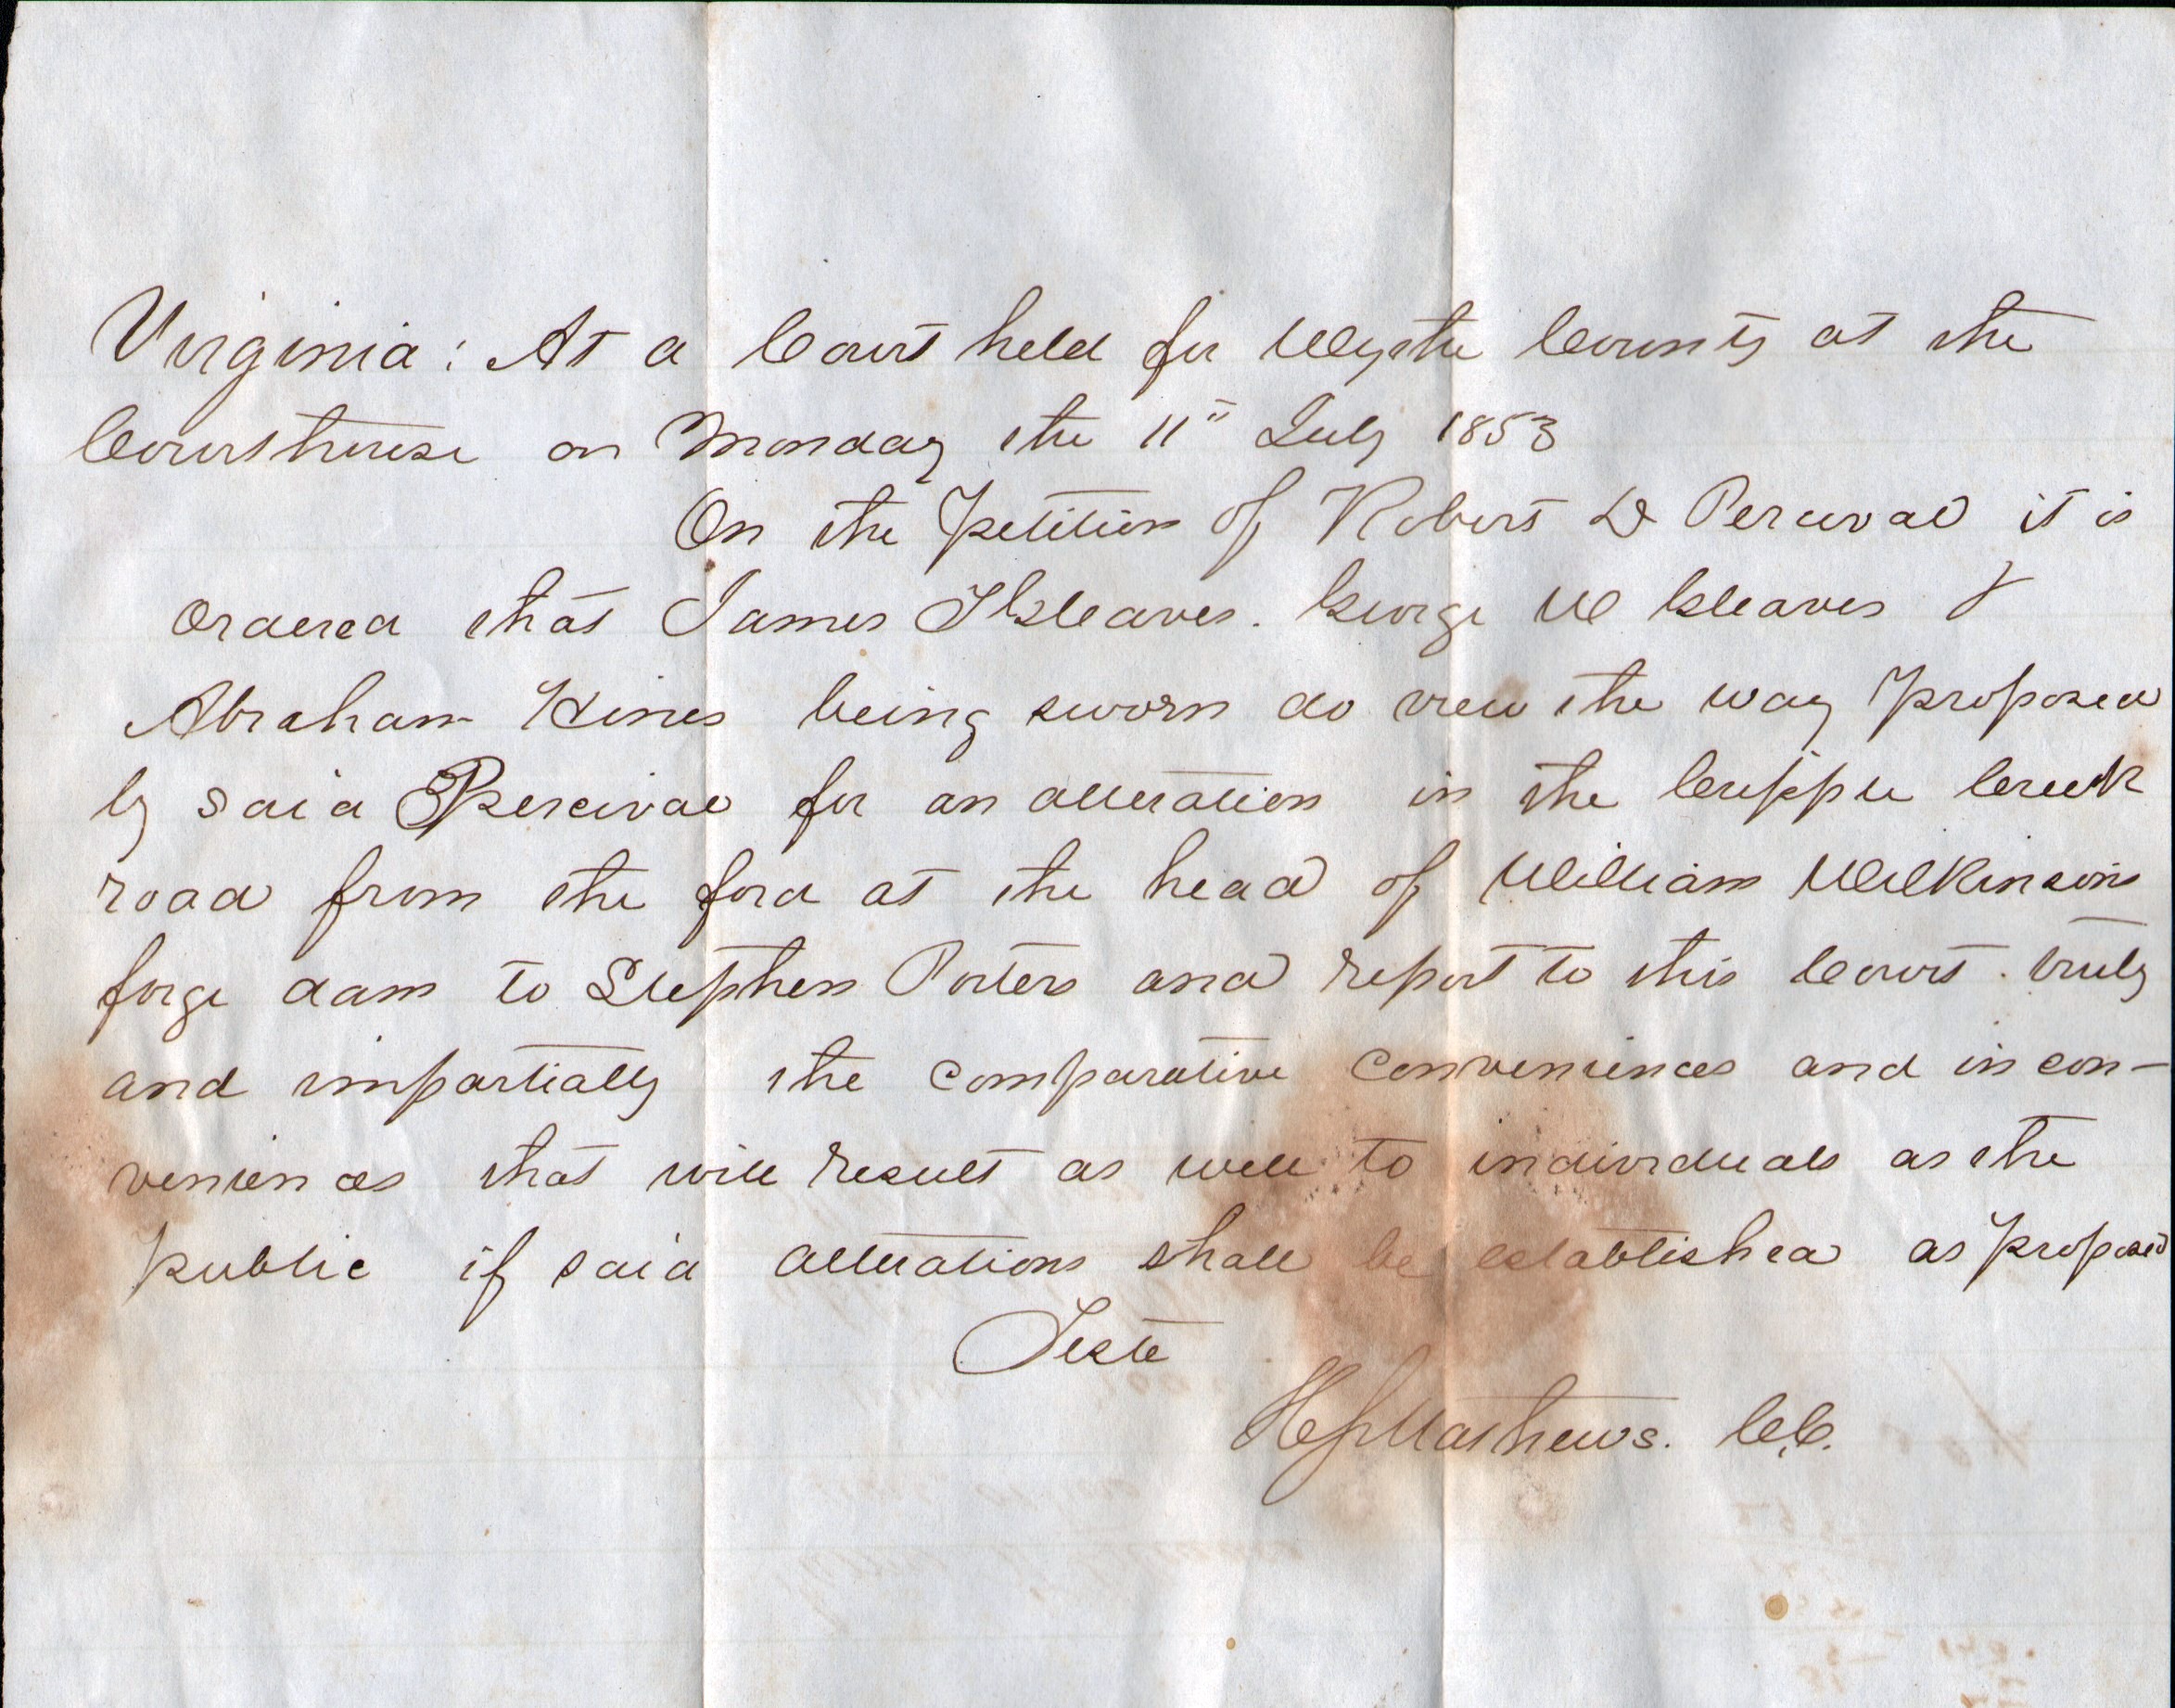 Virginia: At a Court held for Wythe County at the
Courthouse on Monday the 11" July 1853
On the Petition of Robert D Percival it is
ordered that James T Gleaves. George W Gleaves &
Abraham Hines being sworn do view the way proposed
by said Percival for an alteration in the Cripple Creek
road from the ford at the head of William Wilkinsons
forge dam to Stephen Porters and report to this Court truly
and impartially the comparative conveniences and incon-
veniences that will result as well to individuals as the
public if said alterations shall be established as proposed
Teste
Mathews. C.C.